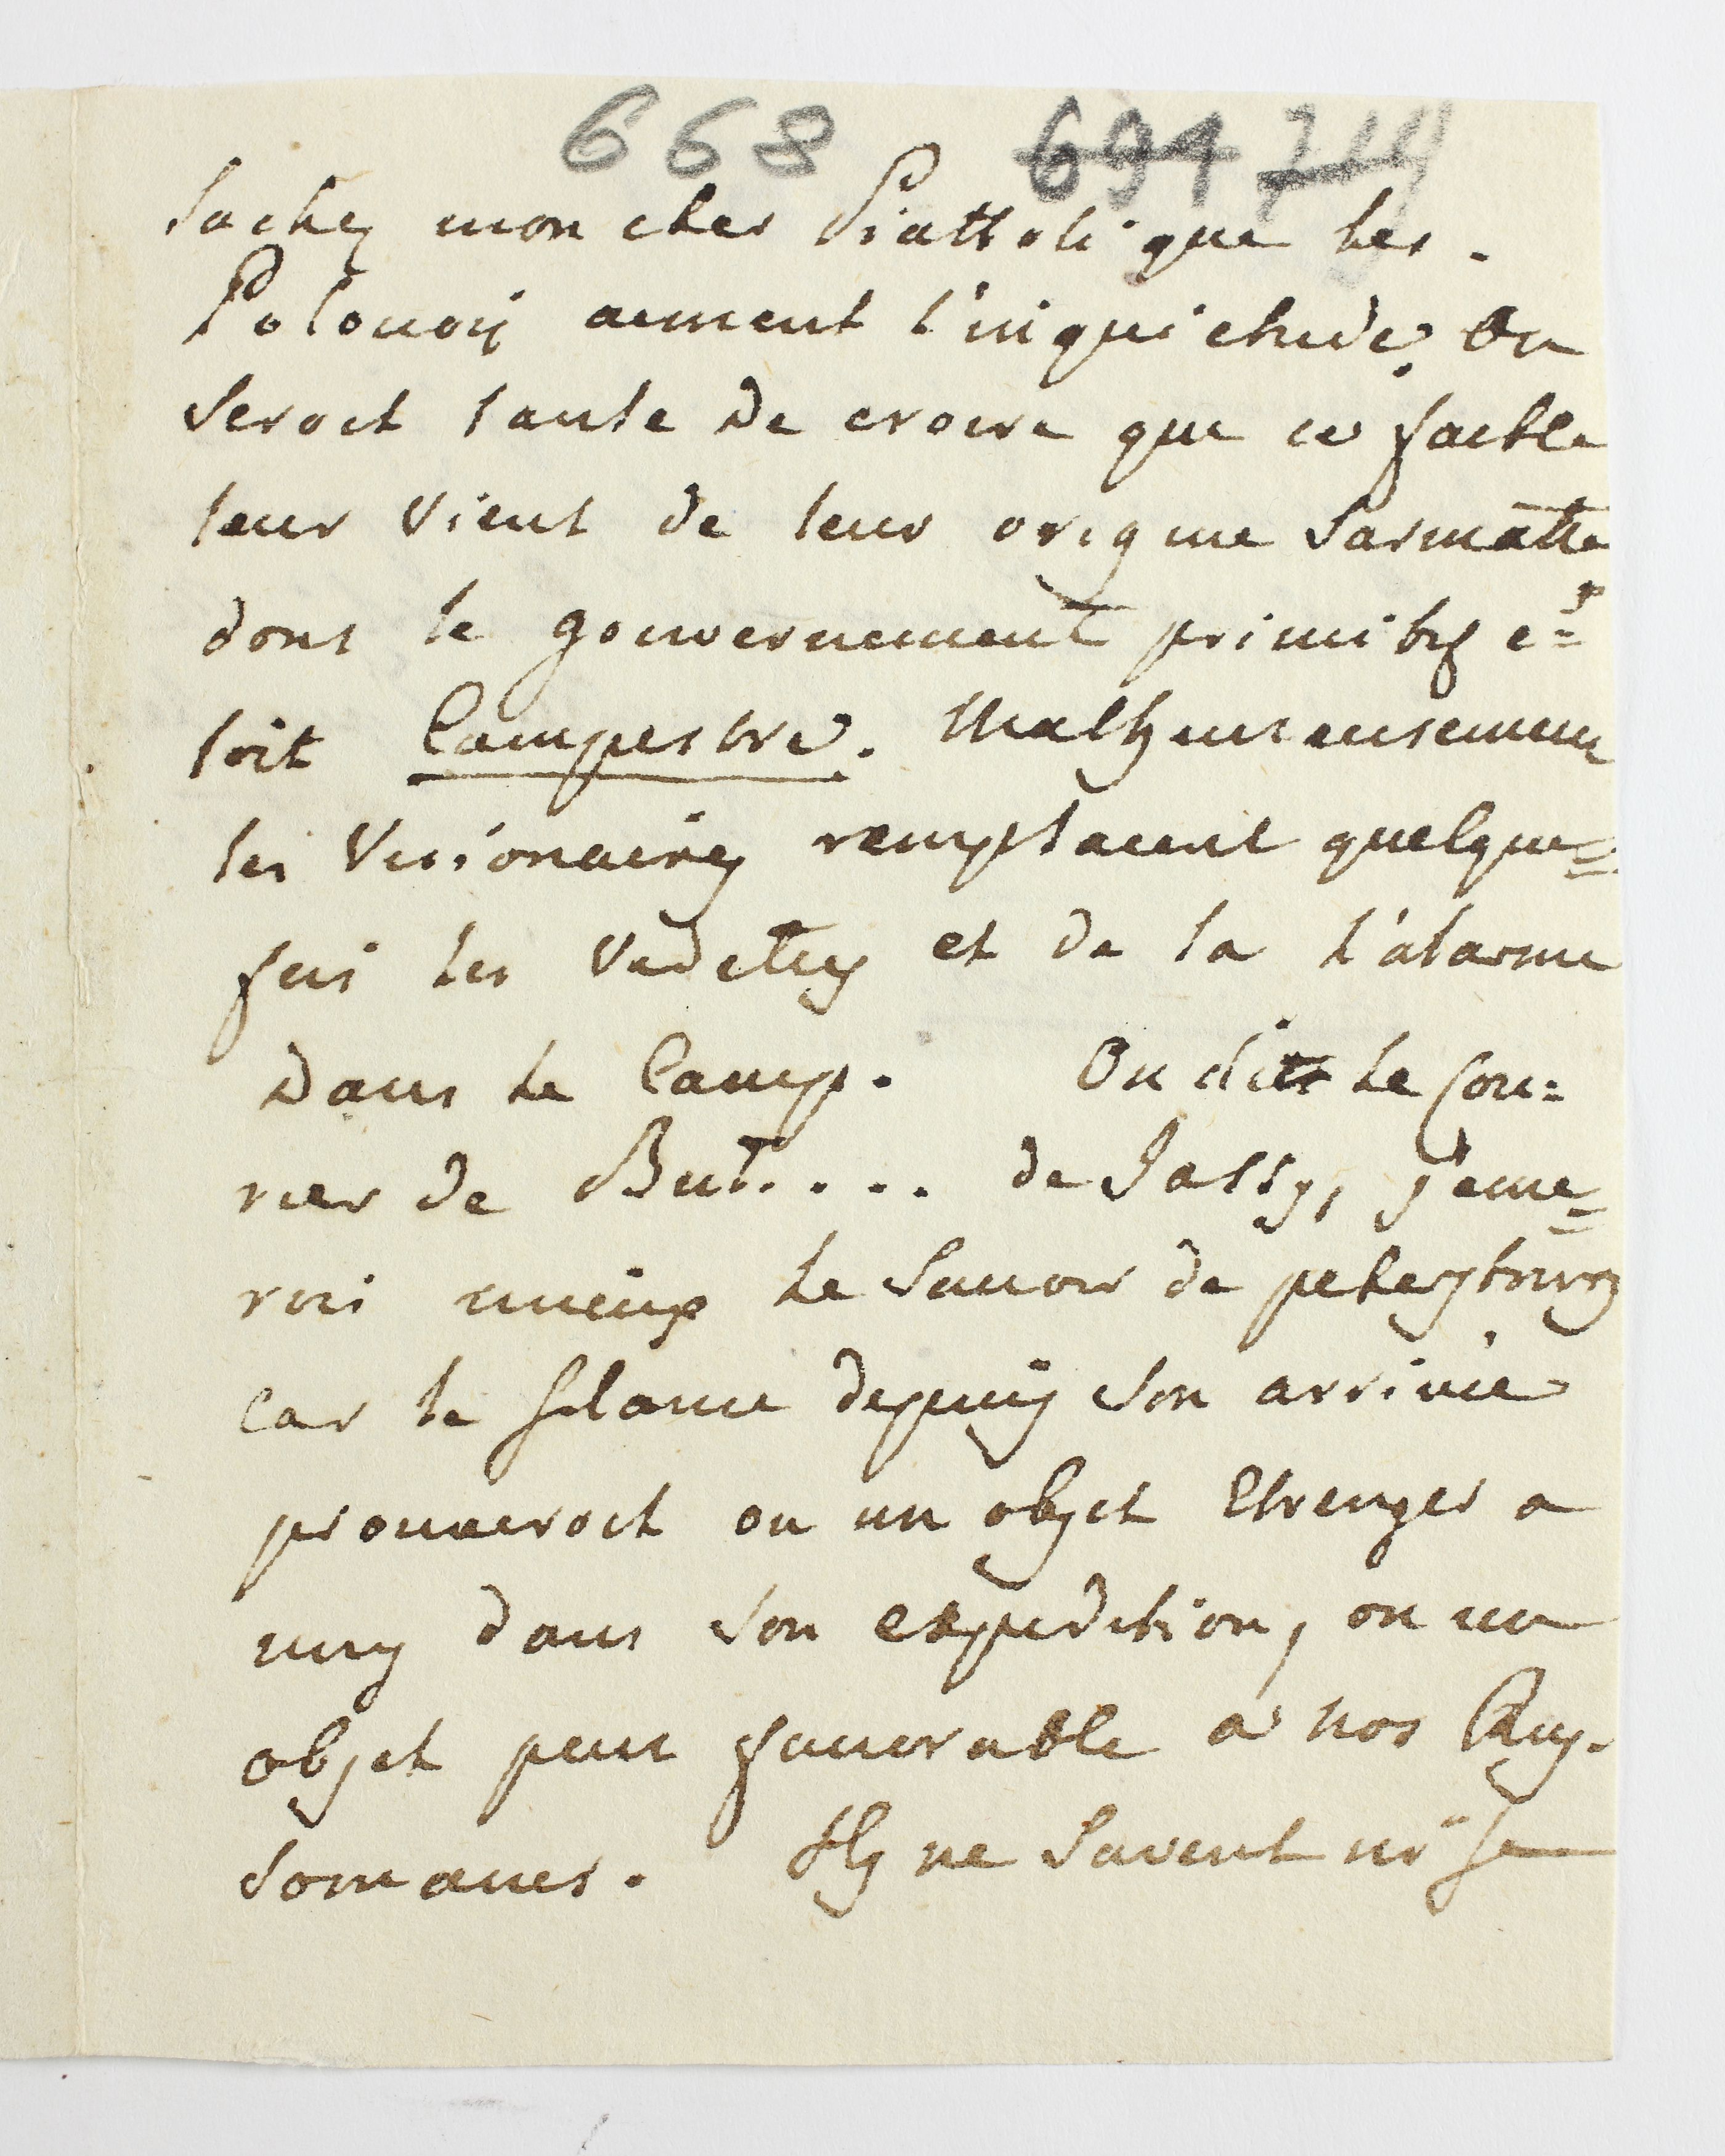 668 694 714
Sachez mon cher Piattoli que les
Polonois aiment l'inquietude. On
seroit tanté de croire que ce faible
leur vient de leur origine Sarmatte
dont le gouvernement primitif e=
toit Campestre. Malheureusement
les Visionaires remplacent quelque=
fois les Vedettes et de la l'alarme
dans le Camp. On dit le Cou=
rier de But.... de Jassy, j'eme=
rois mieux le Savoir de petersbourg
car le silance depuis son arrivée
prouveroit ou un objet Etrenger a
nous dans son expedition, ou un
objet peut favorable a nos Rus.
somanes. Ils ne savent ni se